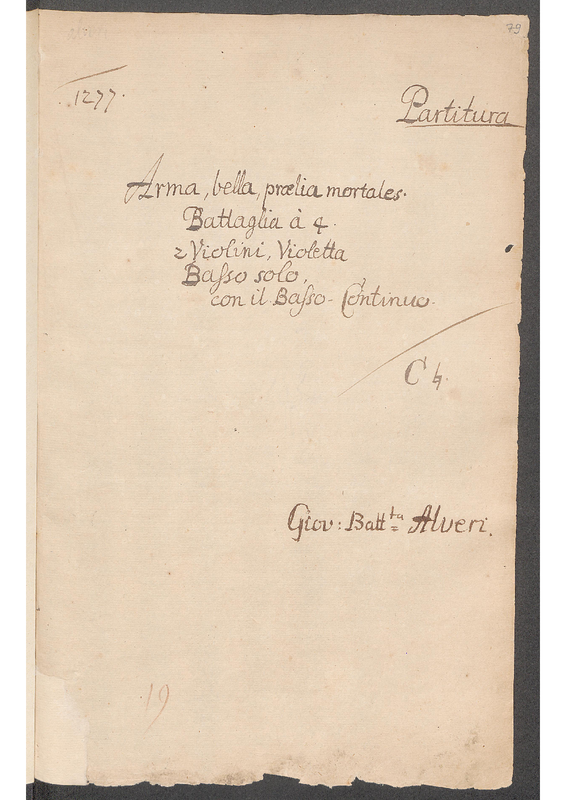 79
1277.
Partitura
Arma, bella, prælia mortales.
Battaglia à 4.
2 Violini, Violetta
Baſso solo,
con il Baſso-Continuo.
C ♮.
Giov: Batt.ta Alveri.
19